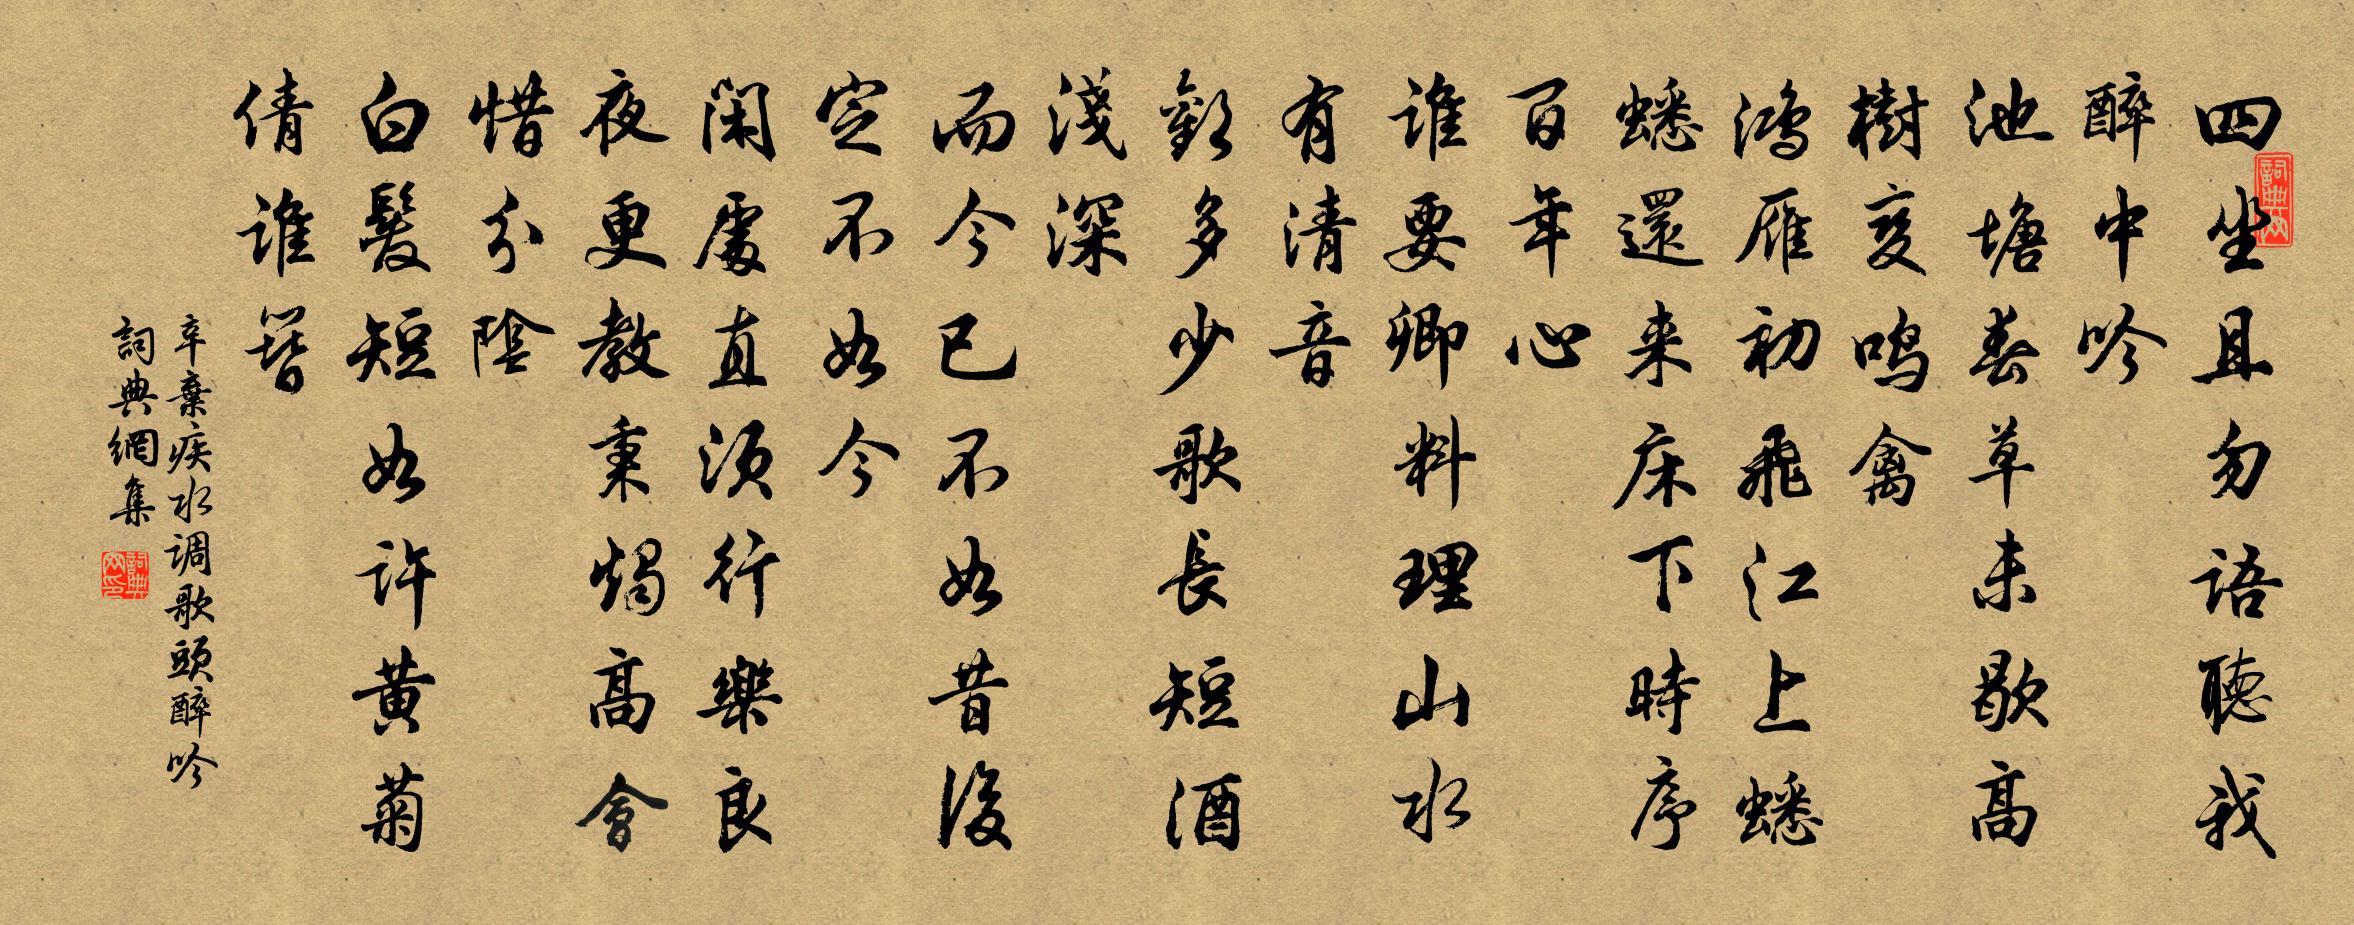 四坐且勿語聽我
醉中吟
池塘春草未歇高
樹变鳴禽
鴻雁初飛江上蟋
蟋還来床下時序
百年心
谁要卿料理山水
有清音
歡多少歌長短酒
淺深
而今已不如昔後
定不如今
闲處直须行樂良
夜更教秉燭高會
惜分陰
白髮短如許黄菊
倩谁簪
辛棄疾水调歌頭醉吟
詞典網集
詞典网
詞典网印